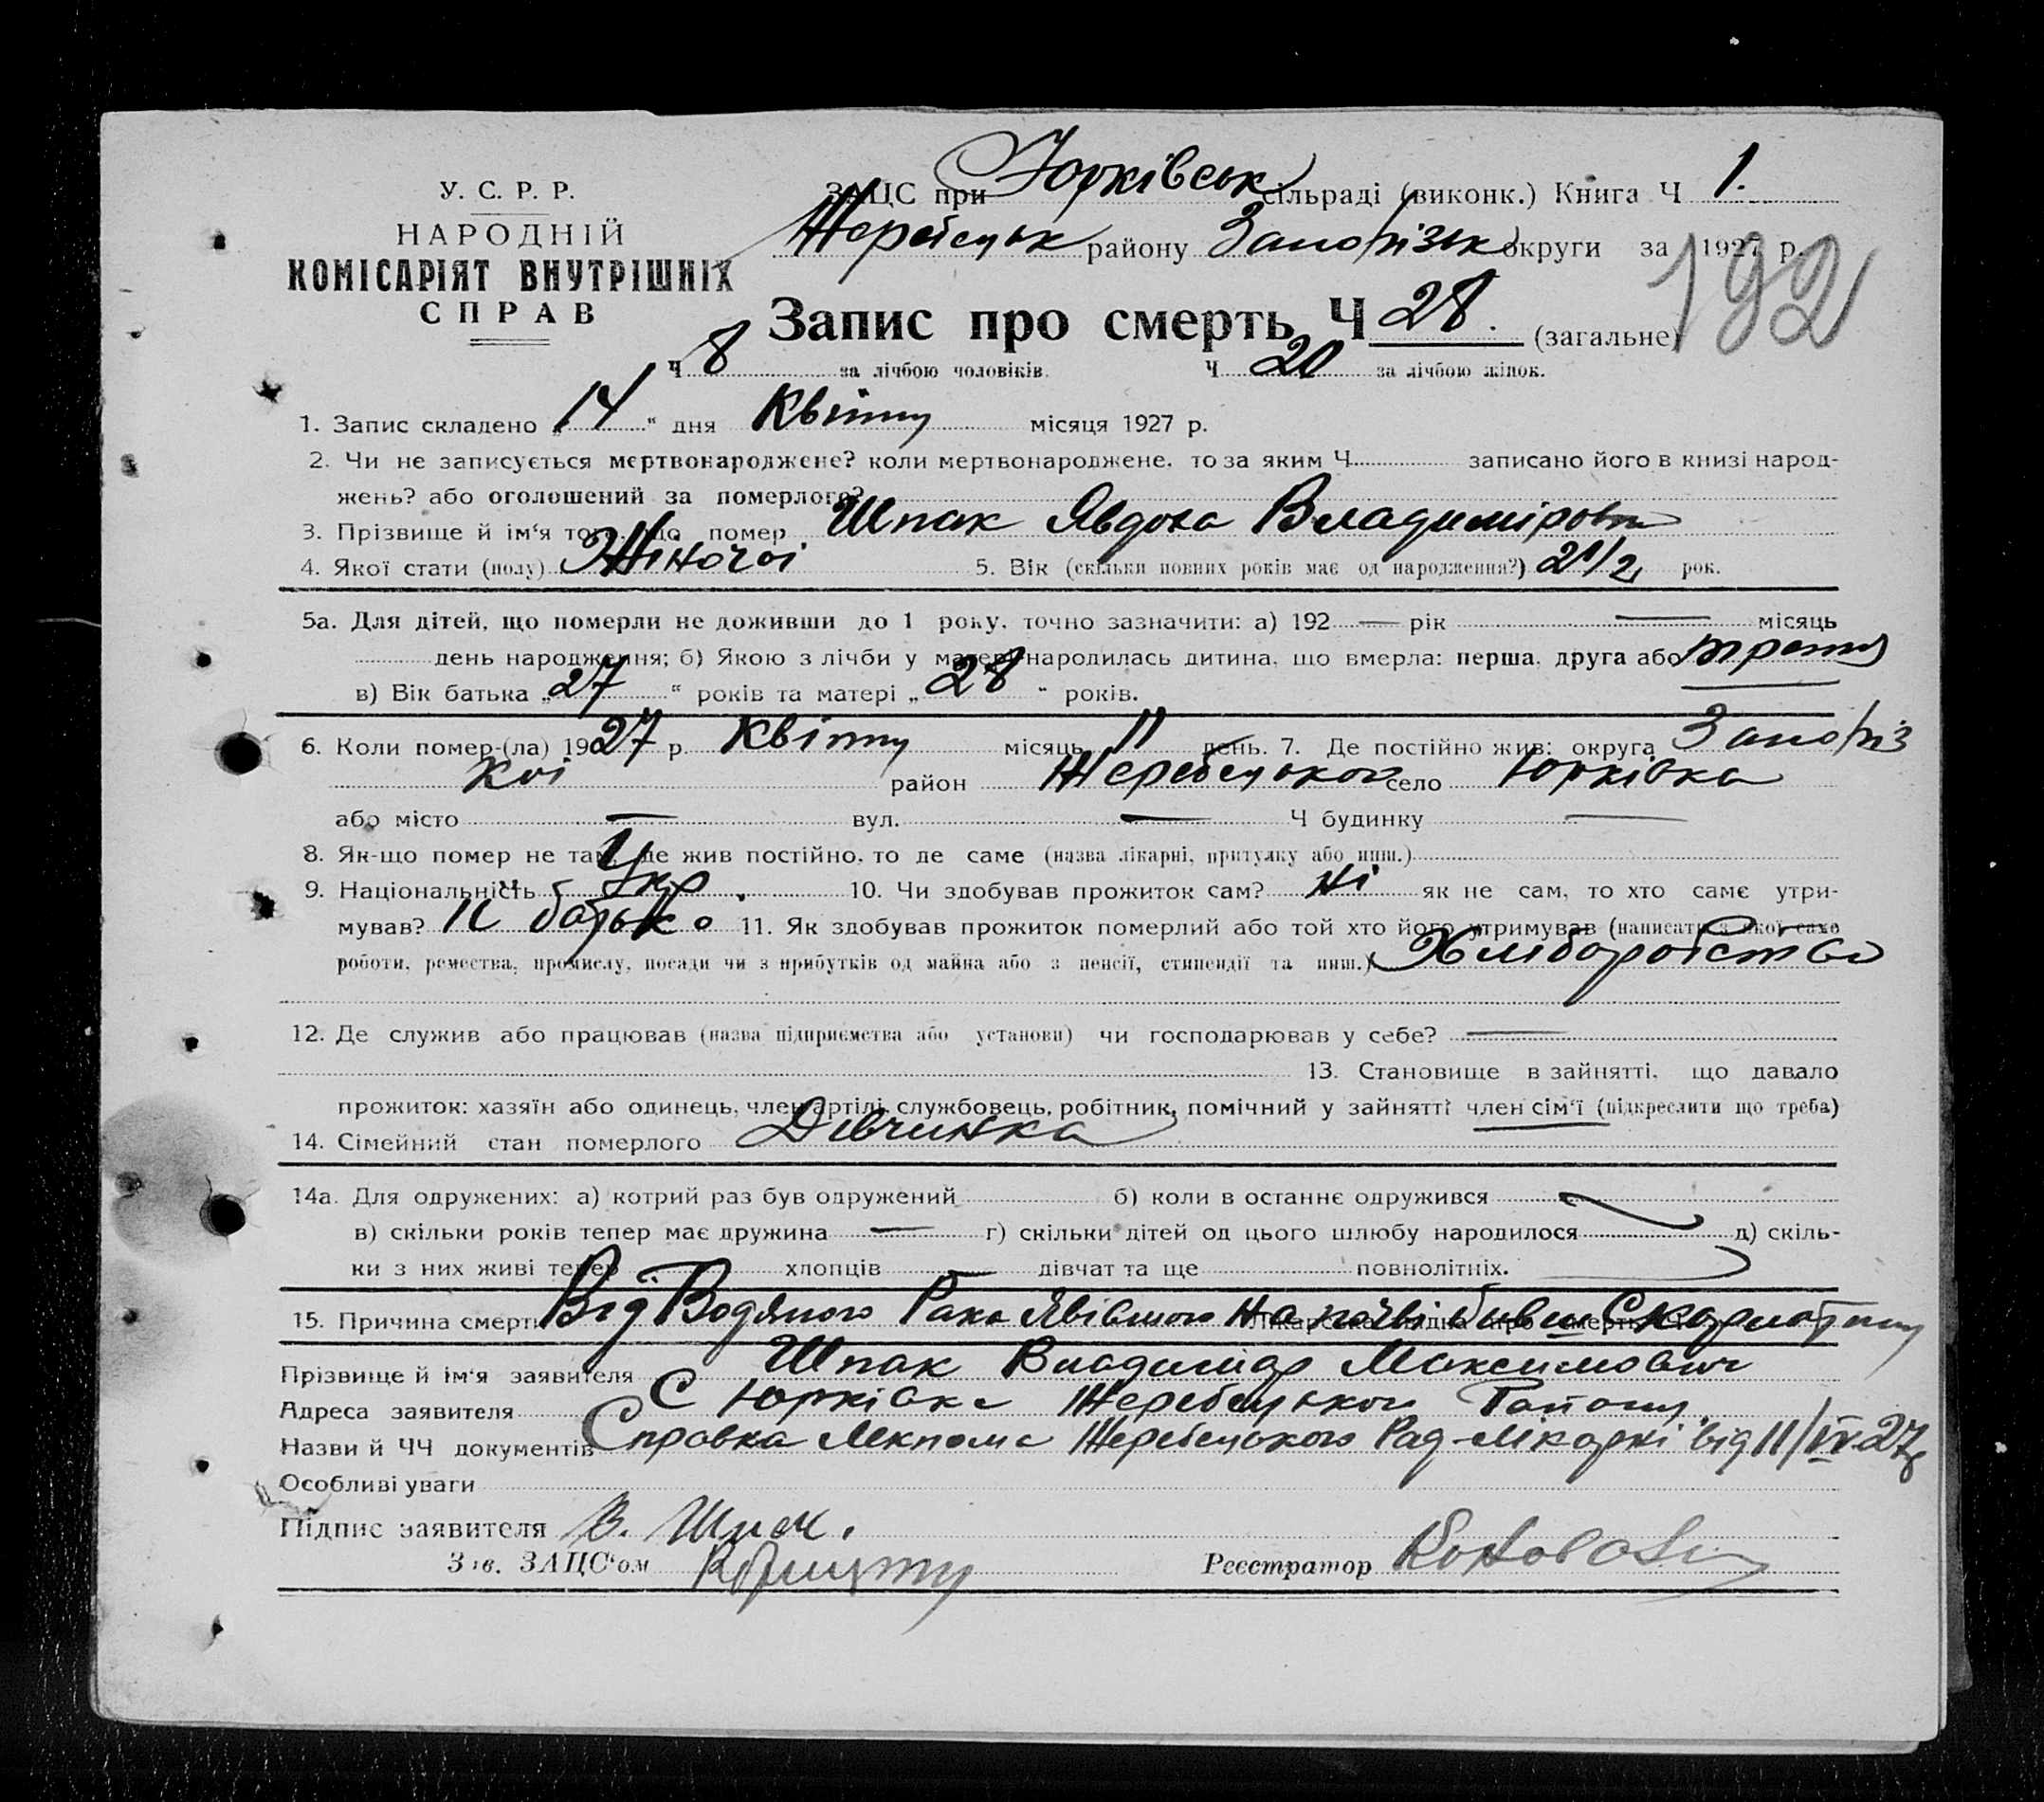 У. С. Р. Р.
НАРОДНІЙ
КОМІСАРІЯТ ВНУТРІШНІХ
СПРАВ
ЗАЦС при Юрківськ сільраді (виконк.) Книга Ч 1.
Жеребецьк району Запоріжськ округи за 1927 р.
192
Запис про смерть Ч 28. (загальне)
Ч 8 за лічбою чоловіків. Ч 20 за лічбою жінок.
1. Запис складено „14“ дня Квітну місяця 1927 р.
2. Чи не записується мертвонароджене? коли мертвонароджене, то за яким Ч записано його в книзі народ-
жень? або оголошений за померлого?
3. Прізвище й ім‘я того, що помер Шпак Явдоха Владиміровна
4. Якої стати (полу) Жіночоі 5. Вік (скільки повних років має од народження?) 2 1/2 рок.
5а. Для дітей, що померли не доживши до 1 року, точно зазначити: а) 192 — рік — місяць
день народження; б) Якою з лічби у матері народилась дитина, що вмерла: перша, друга або третя
в) Вік батька „27“ років та матері „28“ років.
6. Коли помер-(ла) 1927 р. Квітну місяць 11 день. 7. Де постійно жив: округа Запоріз
коі район Жеребецького село Юрківка
або місто — вул. — Ч будинку —
8. Як-що помер не там, де жив постійно, то де саме (назва лікарні, притулку або инш.)
9. Національність Укр. 10. Чи здобував прожиток сам? Ні як не сам, то хто саме утри-
мував? батько 11. Як здобував прожиток померлий або той хто його утримував (написати з якої само
роботи, ремества, промислу, посади чи з прибутків од майна або з пенсії, стипендії та инш.) Хліборобство
12. Де служив або працював (назва підприємства або установи) чи господарював у себе? —
13. Становище в зайнятті, що давало
прожиток: хазяїн або одинець, член артілі, службовець, робітник, помічний у зайнятті член сім‘ї (підкреслити що треба)
14. Сімейний стан померлого Дівчинка
14а. Для одружених: а) котрий раз був одружений б) коли в останнє одружився
в) скільки років тепер має дружина — г) скільки дітей од цього шлюбу народилося д) скіль-
ки з них живі тепер хлопців — дівчат та ще повнолітніх.
15. Причина смерти Від Водяного Рака Явівшого На почві бувш Скарлатину
Прізвище й ім‘я заявителя Шпак Владимір Максимович
Адреса заявителя С Юрківка Жеребецького Району
Назви й ЧЧ документів Справка Лекпома Жеребецького Рад-лікарні від 11/IV 27
Особливі уваги
Підпис заявителя В. Шпак.
Зав. ЗАЦС‘ом Реєстратор